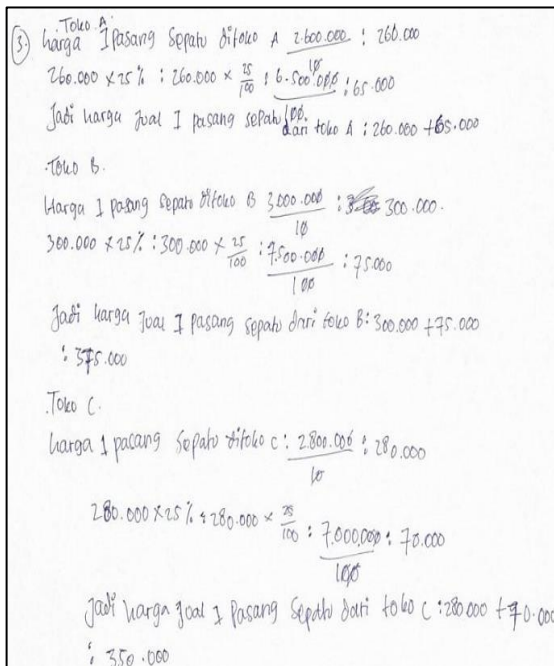 Toko A.
③. Harga 1 Pasang Sepatu ditoko A 2.600.000/10 : 260.000
260.000 × 25% : 260.000 × 25/100 : 6.500.000/100 : 65.000
Jadi harga Jual 1 pasang sepatu dari toko A : 260.000 + 65.000
.Toko B.
Harga 1 pasang sepatu ditoko B 3.000.000/10 : 300.000.
300.000 × 25% : 300.000 × 25/100 : 7.500.000/100 : 75.000
Jadi harga Jual 1 pasang sepatu dari toko B : 300.000 + 75.000
: 375.000
.Toko C.
harga 1 pasang sepatu ditoko C : 2.800.000/10 : 280.000
280.000 × 25% : 280.000 × 25/100 : 7.000.000/100 : 70.000
Jadi harga Jual 1 Pasang Sepatu dari toko C : 280.000 + 70.000
: 350.000